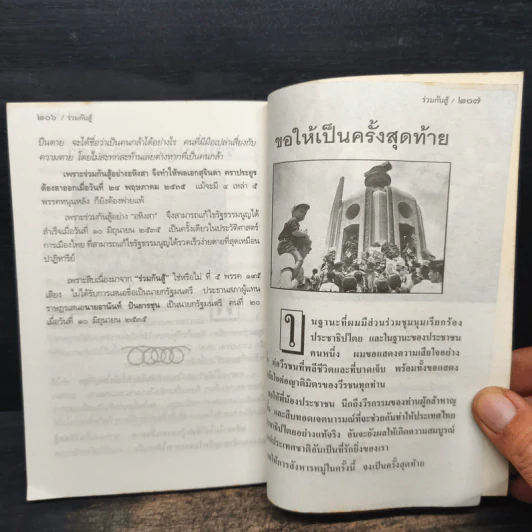 ๒๐๖ / ร่วมกันสู้
ปืนตาย จะได้ชื่อว่าเป็นคนกล้าได้อย่างไร คนที่มีมือเปล่าเสี่ยงกับ
ความตาย โดยไม่สะทกสะท้านเลยต่างหากที่เป็นคนกล้า
เพราะร่วมกันสู้อย่างอหิงสา จึงทำให้พลเอกสุจินดา คราประยูร
ต้องลาออกเมื่อวันที่ ๒๔ พฤษภาคม ๒๕๓๕ แม้จะมี ๔ เหล่า ๕
พรรคหนุนหลัง ก็ยังต้องพ่ายแพ้
เพราะร่วมกันสู้อย่าง "อหิงสา" จึงสามารถแก้ไขรัฐธรรมนูญได้
สำเร็จเมื่อวันที่ ๑๐ มิถุนายน ๒๕๓๕ เป็นครั้งเดียวในประวัติศาสตร์
การเมืองไทย ที่สามารถแก้ไขรัฐธรรมนูญได้รวดเร็วง่ายดายที่สุดเหมือน
ปาฏิหาริย์
เพราะสืบเนื่องมาจาก "ร่วมกันสู้" ใช่หรือไม่ ที่ ๕ พรรค ๑๙๕
เสียง ไม่ได้รับการเสนอชื่อเป็นนายกรัฐมนตรี ประธานสภาผู้แทน
ราษฎรเสนอนายอานันท์ ปันยารชุน เป็นนายกรัฐมนตรี คนที่ ๒๐
เมื่อวันที่ ๑๐ มิถุนายน ๒๕๓๕
ร่วมกันสู้ / ๒๐๗
ขอให้เป็นครั้งสุดท้าย
ในฐานะที่ผมมีส่วนร่วมชุมนุมเรียกร้อง
ประชาธิปไตย และในฐานะของประชาชน
คนหนึ่ง ผมขอแสดงความเสียใจอย่าง
ต่อวีรชนที่พลีชีวิตและที่บาดเจ็บ พร้อมทั้งขอแสดง
ต่อญาติมิตรของวีรชนทุกท่าน
ให้พี่น้องประชาชน นึกถึงวีรกรรมของท่านผู้กล้าหาญ
และสืบทอดเจตนารมณ์ที่จะช่วยกันทำให้ประเทศไทย
ธิปไตยอย่างแท้จริง อันจะยังผลให้เกิดความสมบูรณ์
ประเทศชาติอันเป็นที่รักยิ่งของเรา
ให้การสังหารหมู่ในครั้งนี้ จงเป็นครั้งสุดท้าย